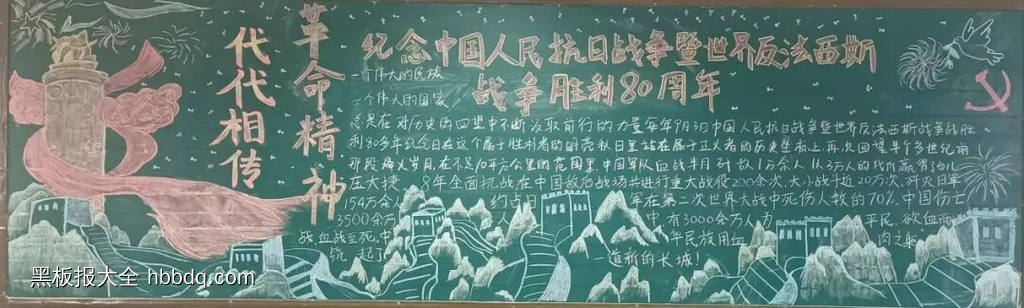 革命精神
代代相传
纪念中国人民抗日战争暨世界反法西斯
战争胜利80周年
一个伟大的民族
一个伟大的国家
总是在对历史的回望中不断汲取前行的力量每年9月3日中国人民抗日战争暨世界反法西斯战争战胜
利80多年纪念日在这个属于胜利者的明亮秋日里站在属于正义者的历史
那段烽火岁月,在不足10平方公里的范围里,中国军队血战半月
庄大捷。8年全面抗战在中国敌后战场共进行重大战役200余次,大小战斗近20万次,歼灭日军
154万余 约占日 军在第二次世界大战中死伤人数的70%。中国伤亡
3500余万 中,有3000余万人为 平民,欲血而
战血战至死,中 华民族用血 肉之躯
筑起了 一道新的长城!
黑板报大全 hbbdq.com